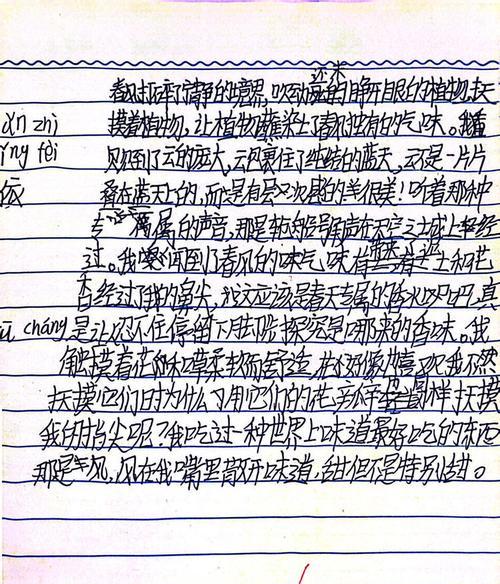 还未
春风打碎了清静的境界,吹动的睁开眼的植物,抚
ān zhì 摸着植物,让植物蘸染上了春风独有的气味。我看
íng fēi 见到了云的庞大,云包裹住了纯洁的蓝天,云不是一片片
依 叠在蓝天上的,而是有层次感的美很美!听着那种
专属的声音,那是轨的号角声在天空之城上轻轻经
过。我闻到了春风的味气味,有带着土和花
香经过了我的鼻尖,这应该是春天专属的香水吧,真
cháng 是让忍不住停留下脚陪探究是哪来的香味。我
触摸着花和草柔软而舒适,花好像喜欢我不然
抚摸它们时为什么用它们的花一样抚摸
我的指尖呢?我吃过一种世界上味道最好吃的东西
那是风,风在我嘴里散开味道,甜但不是特别甜。